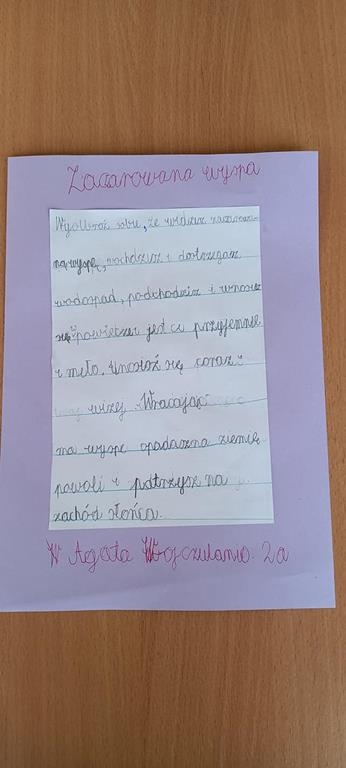 Zaczarowana wyspa
Wyobraź sobie, że widzisz zaczarowa-
ną wyspę, wchodzisz i dostrzegasz
wodospad, podchodzisz i wnosisz
się powietrze jest ci przyjemnie
i miło. Unosisz się coraz
wizej Wracając
na wyspe opadasz na ziemię
powoli i patrzysz na
zachód słońca.
Agata 2a